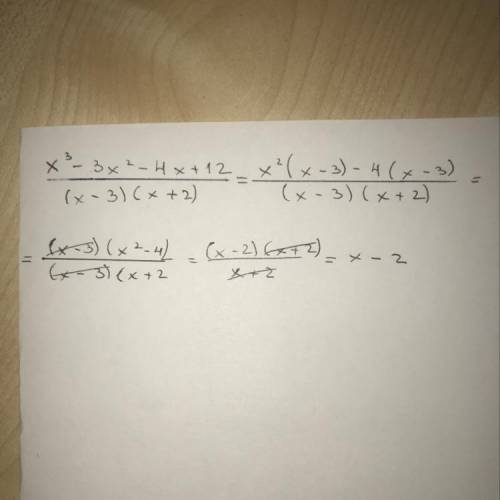 x³ - 3x² - 4x + 12 / (x - 3)(x + 2) = x²(x - 3) - 4(x - 3) / (x - 3)(x + 2) =
= (x - 3)(x² - 4) / (x - 3)(x + 2 = (x - 2)(x + 2) / x + 2 = x - 2